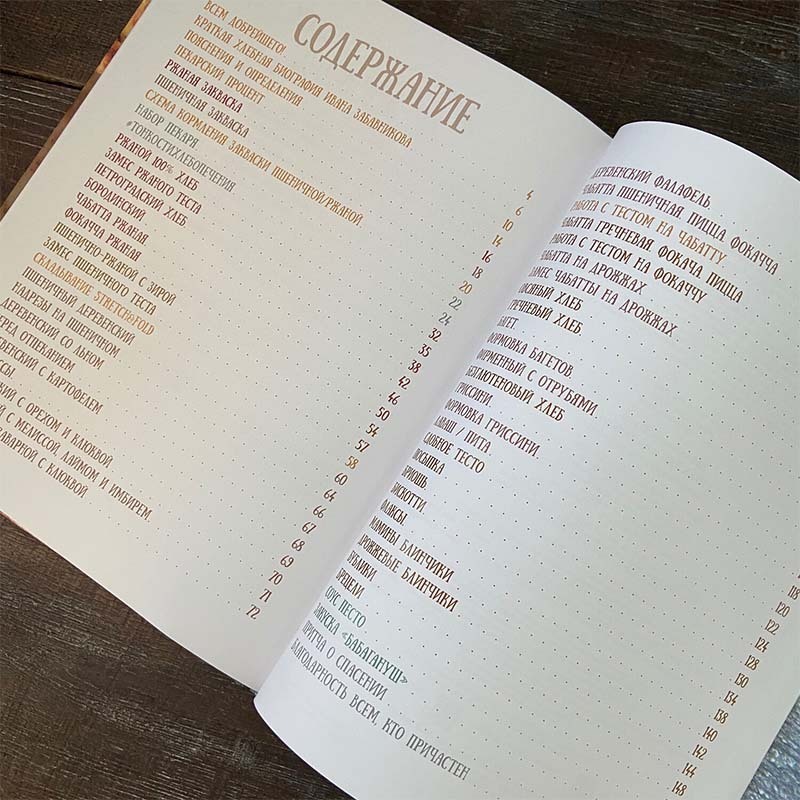 СОДЕРЖАНИЕ
ВСЕМ ДОБРЕЙШЕГО!
КРАТКАЯ ХЛЕБНАЯ БИОГРАФИЯ ИВАНА ЗАБАВНИКОВА
ПОЯСНЕНИЯ И ОПРЕДЕЛЕНИЯ
ПЕКАРСКИЙ ПРОЦЕНТ
РЖАНАЯ ЗАКВАСКА
ПШЕНИЧНАЯ ЗАКВАСКА
СХЕМА КОРМЛЕНИЯ ЗАКВАСКИ ПШЕНИЧНОЙ/РЖАНОЙ
НАБОР ПЕКАРЯ
#ТОНКОСТИХЛЕБОПЕЧЕНИЯ
РЖАНОЙ 100% ХЛЕБ
ЗАМЕС РЖАНОГО ТЕСТА
ПЕТРОГРАДСКИЙ ХЛЕБ
БОРОДИНСКИЙ
ЧАБАТТА РЖАНАЯ
ФОКАЧЧА РЖАНАЯ
ПШЕНИЧНО-РЖАНОЙ С ЗИРОЙ
ЗАМЕС ПШЕНИЧНОГО ТЕСТА
СКЛАДЫВАНИЕ STRETCH&FOLD
ПШЕНИЧНЫЙ ДЕРЕВЕНСКИЙ
НАДРЕЗЫ НА ПШЕНИЧНОМ
ДЕРЕВЕНСКИЙ СО ЛЬНОМ
ПЕРЕД ОТПЕКАНИЕМ
С КАРТОФЕЛЕМ
С ОРЕХОМ И КЛЮКВОЙ
С МЕЛИССОЙ, ЛАЙМОМ И ИМБИРЕМ
С КЛЮКВОЙ
4
6
10
14
16
18
20
22
24
32
35
38
42
46
50
54
57
58
60
64
66
67
68
69
70
71
72
ДЕРЕВЕНСКИЙ ФАЛАФЕЛЬ
ЧАБАТТА ПШЕНИЧНАЯ ПИЦЦА ФОКАЧЧА
РАБОТА С ТЕСТОМ НА ЧАБАТТУ
ЧАБАТТА ГРЕЧНЕВАЯ ФОКАЧА ПИЦЦА
РАБОТА С ТЕСТОМ НА ФОКАЧЧУ
ЧАБАТТА НА ДРОЖЖАХ
ЗАМЕС ЧАБАТТЫ НА ДРОЖЖАХ
ОВСЯНЫЙ ХЛЕБ
ГРЕЧНЕВЫЙ ХЛЕБ
БАГЕТ
ФОРМОВКА БАГЕТОВ
ФИРМЕННЫЙ С ОТРУБЯМИ
БЕЗГЛЮТЕНОВЫЙ ХЛЕБ
ГРИССИНИ
ФОРМОВКА ГРИССИНИ
ЛАВАШ / ПИТА
СДОБНОЕ ТЕСТО
БРИОШЬ
БИСКОТТИ
МАМИНЫ БЛИНЧИКИ
ДРОЖЖЕВЫЕ БЛИНЧИКИ
БУБЛИКИ
БРЕЦЕЛИ
СОУС ПЕСТО
ЗАКУСКА «БАБАГАНУШ»
ПРИТЧА О СПАСЕНИИ
БЛАГОДАРНОСТЬ ВСЕМ, КТО ПРИЧАСТЕН
118
120
122
124
128
130
134
138
140
142
144
148